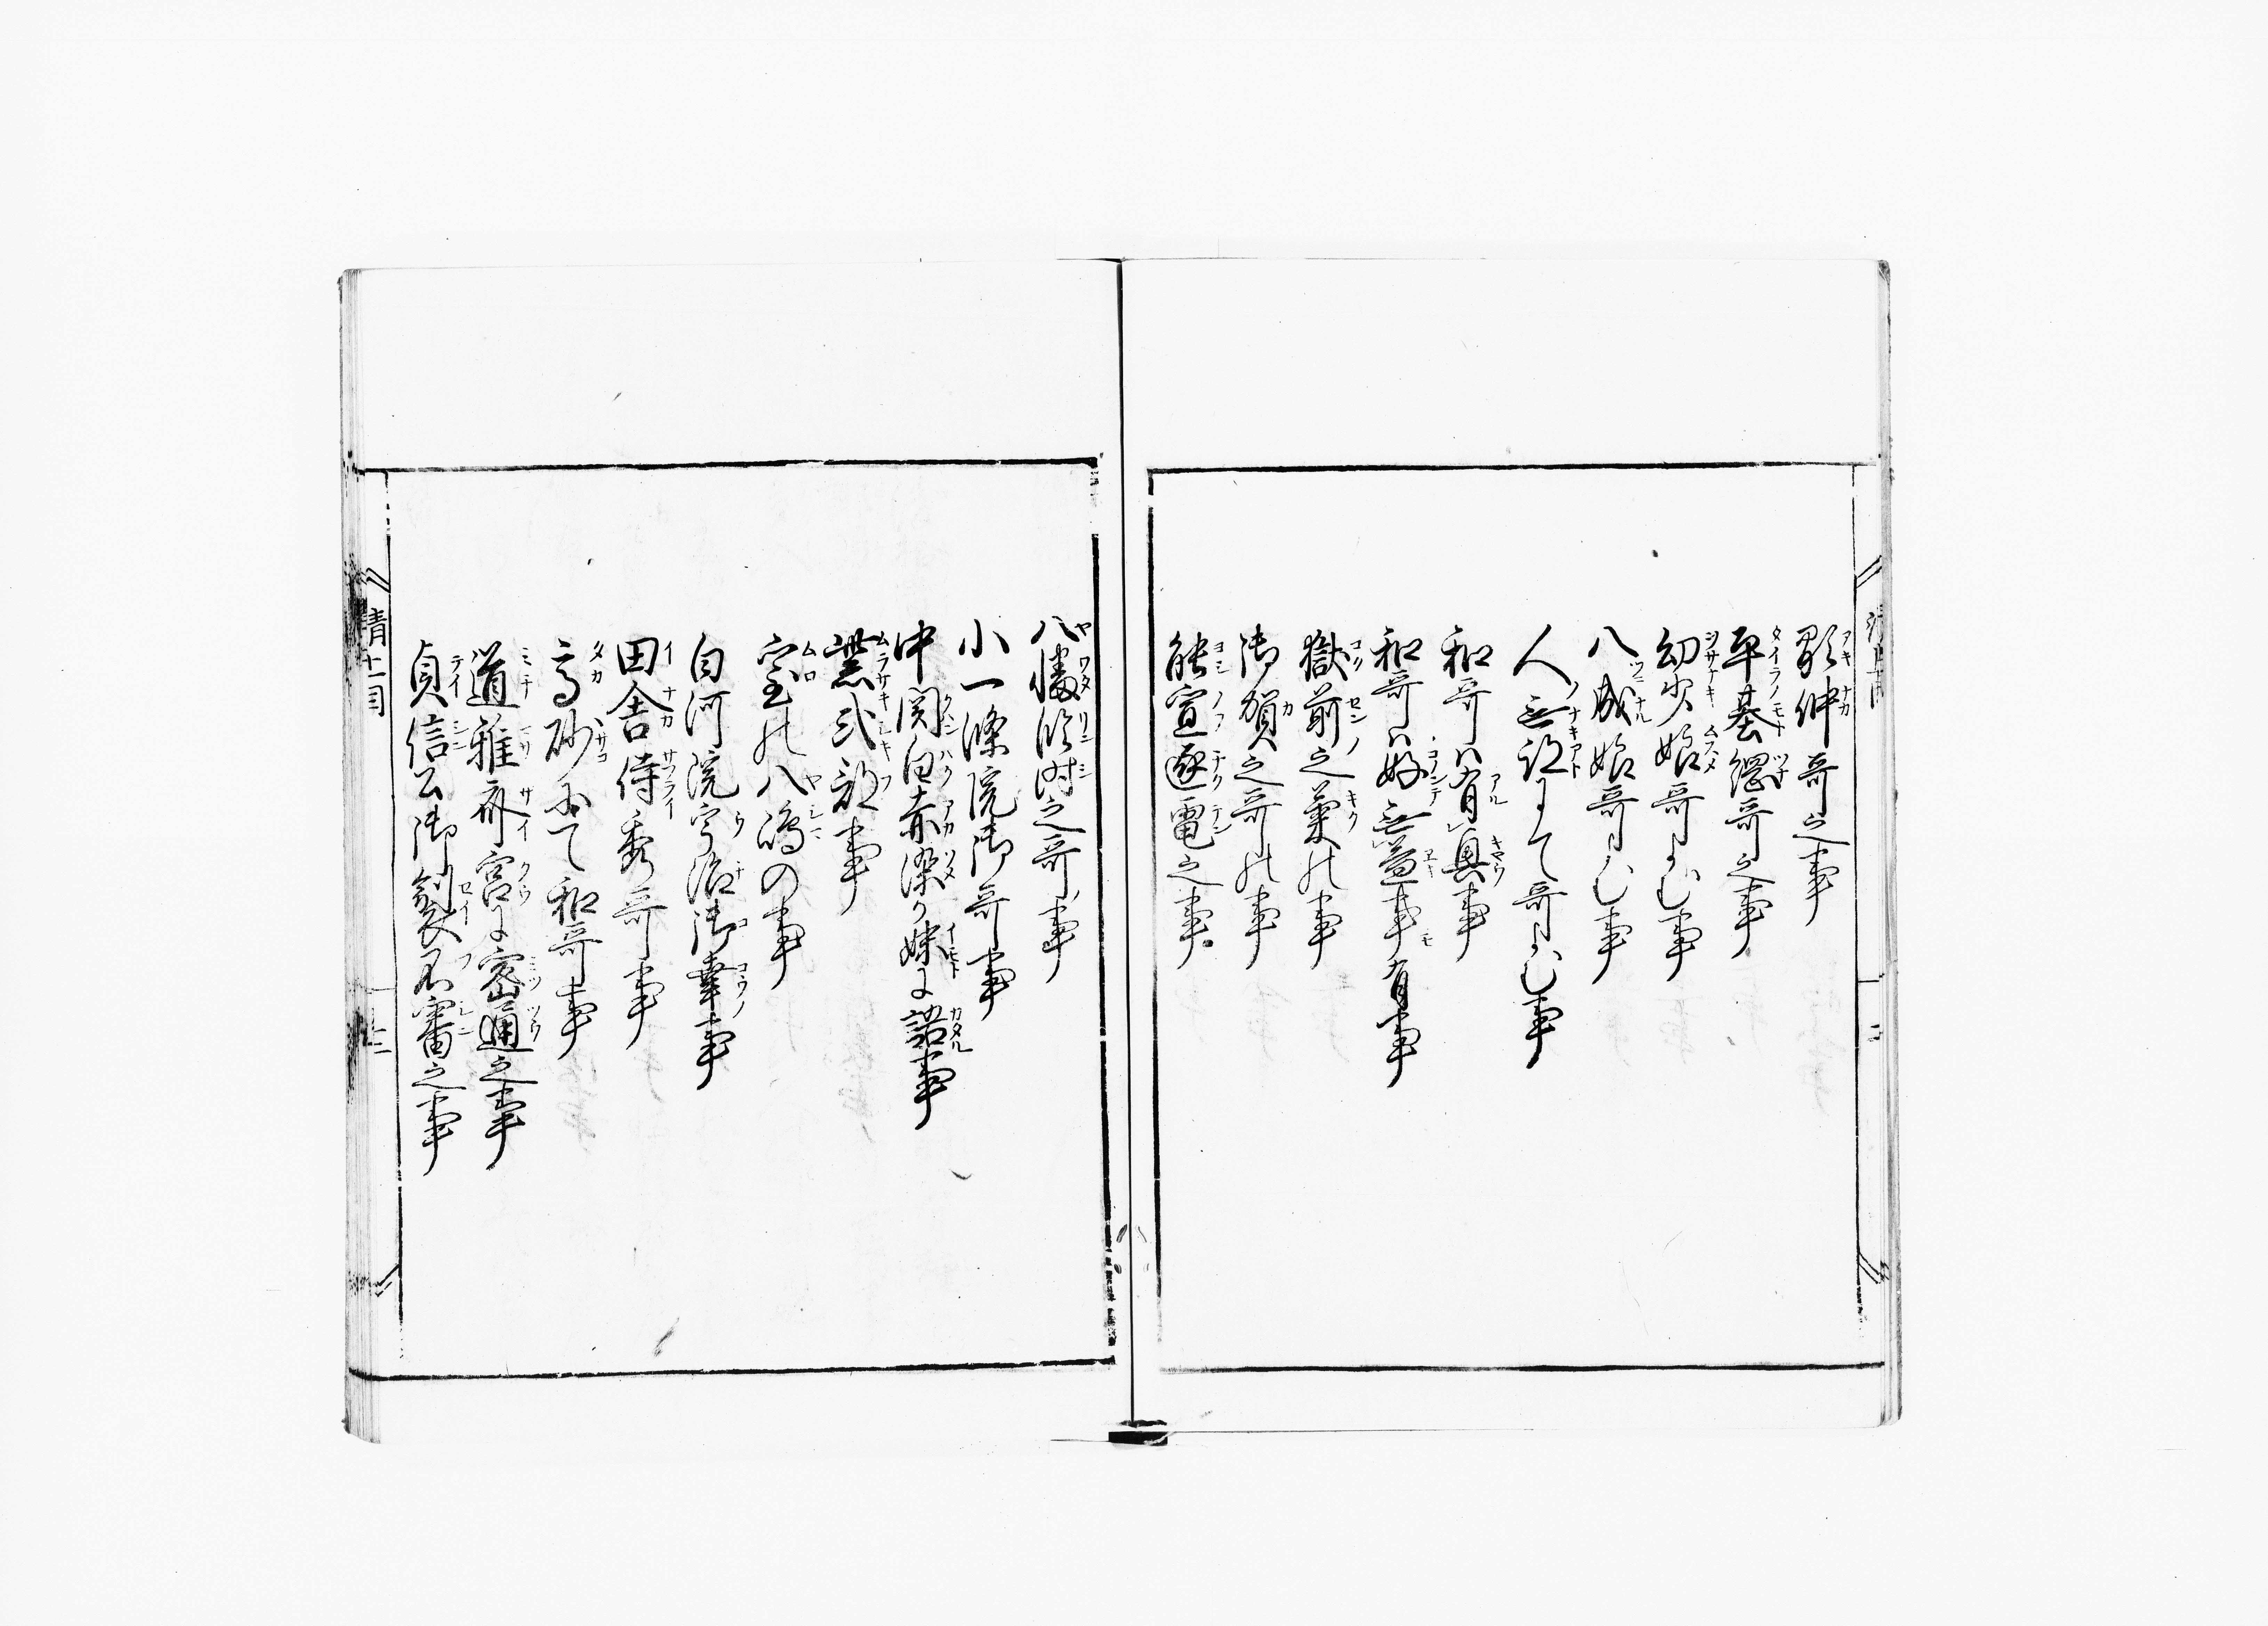 顕仲哥之事
平基綱哥之事
幼少娘哥よむ事
八成娘哥よむ事
人之無跡にて哥よむ事
和哥ハ有興事
和哥ハ好無益事有事
獄前之菊の事
御賀之哥の事
能宣逐電之事
八幡臨時之哥事
小一條院御哥事
中関白赤染か妹に語事
紫式部事
室の八嶋の事
白河院宇治御幸事
田舎侍秀哥事
高砂にて和哥事
道雅斎宮に密通之事
貞信公御製不審之事
清十一目